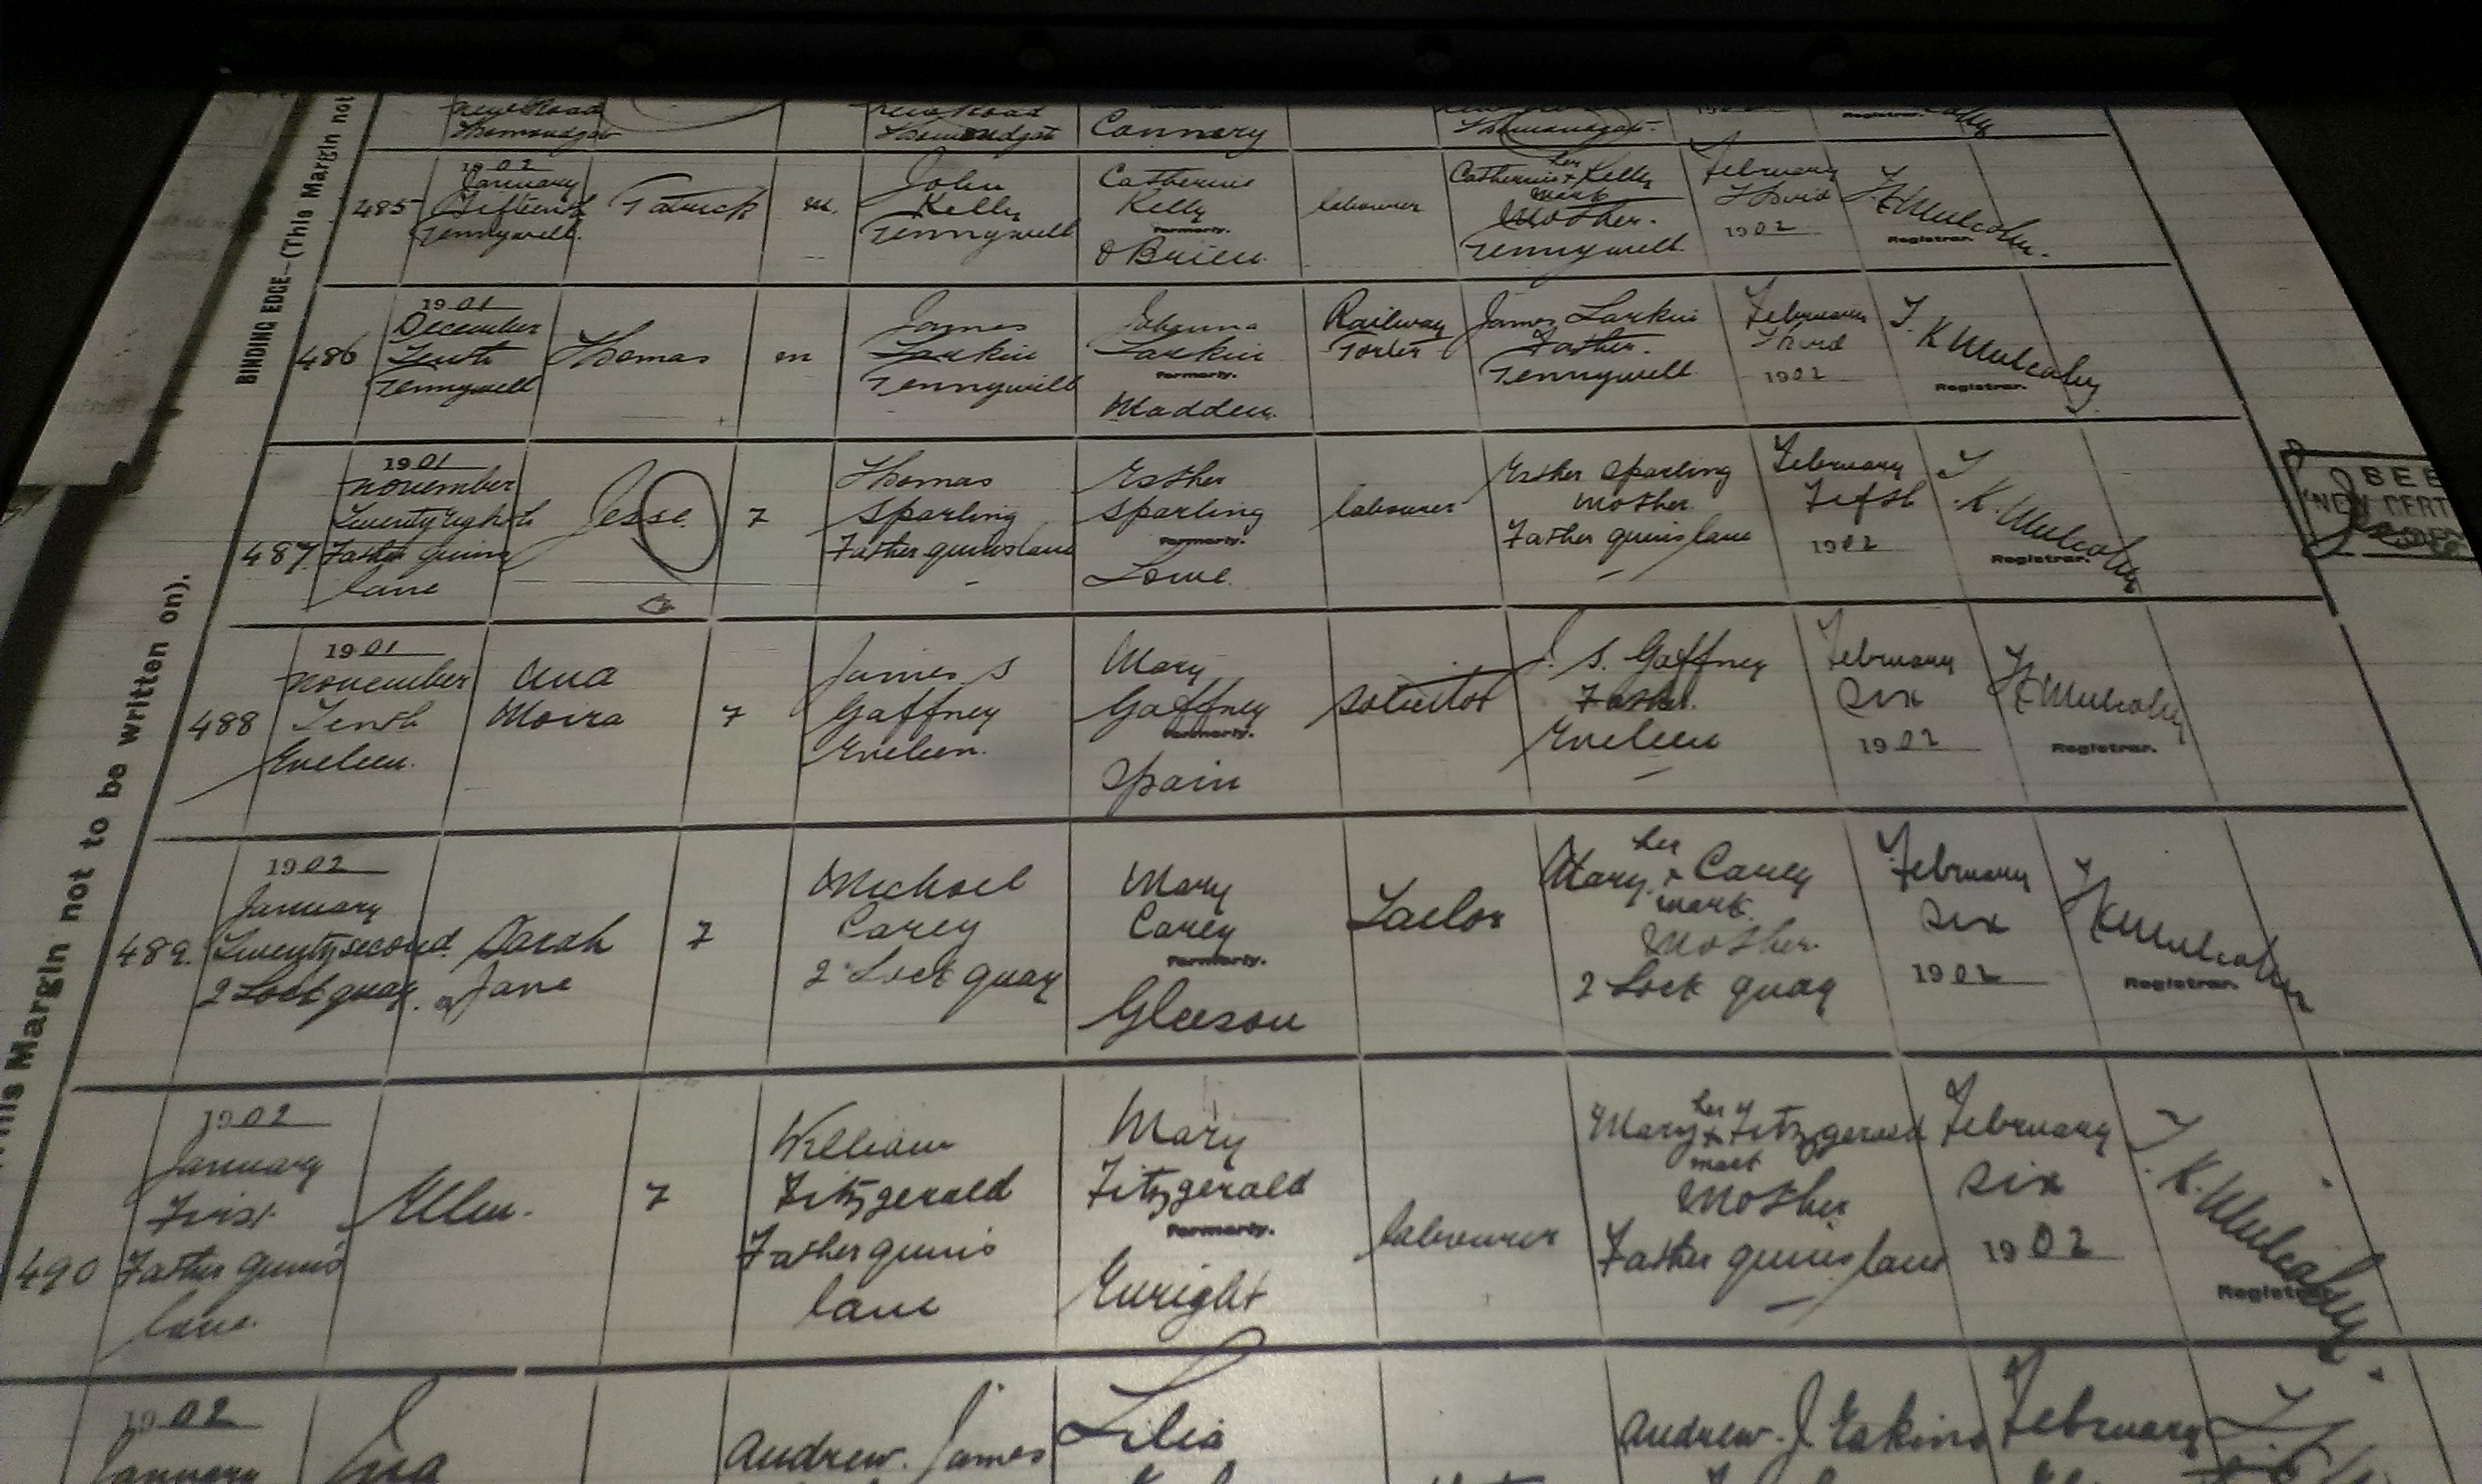 BINDING EDGE—(This Margin not to be written on).
This Margin not to be written on).
New Road
Thomondgate
New Road
Thomondgate
Connery
Thomondgate.
Registrar.
485
1902
January
Fifteenth
Pennywell.
Patrick
m.
John
Kelly
Pennywell
Catherine
Kelly
Formerly.
O Brien
labourer
her
Catherine + Kelly
mark
Mother.
Pennywell
February
Third
1902
T K Mulcahy.
Registrar.
486
1901
December
Tenth
Pennywell
Thomas
m
James
Larkin
Pennywell
Johanna
Larkin
Formerly.
Madden
Railway
Porter
James Larkin
Father.
Pennywell
February
Third
1902
T. K Mulcahy
Registrar.
487
1901
November
Twenty eighth
Father Quins
lane
Jesse
7
Thomas
Sparling
Father quins lane
Esther
Sparling
Formerly.
Lowe
labourer
Esther Sparling
Mother.
Father quins lane
February
Fifth
1902
T. K. Mulcahy
Registrar.
SEE
NEW CERT
488
1901
November
Tenth
Eveleen.
Una
Moira
7
James S
Gaffney
Eveleen.
Mary
Gaffney
Formerly.
Spain
Solicitor
J. S. Gaffney
Father.
Eveleen
February
Six
1902
T K Mulcahy
Registrar.
489.
1902
January
Twenty second
2 Lock quay.
Sarah
Jane
7
Michael
Carey
2 Lock quay
Mary
Carey
Formerly.
Gleeson
Tailor
her
Mary + Carey
mark.
Mother.
2 Lock quay
February
Six
1902
T K Mulcahy
Registrar.
490
1902
January
First
Father quins
lane.
Ellen.
7
William
Fitzgerald
Father quins
lane
Mary
Fitzgerald
Formerly.
Enright
labourer
her
Mary + Fitzgerald
mark
Mother
Father quins lane
February
Six
1902
T. K. Mulcahy.
Registrar.
1902
January
Ina
Andrew. James
Lilia
Andrew. J Eakins
February